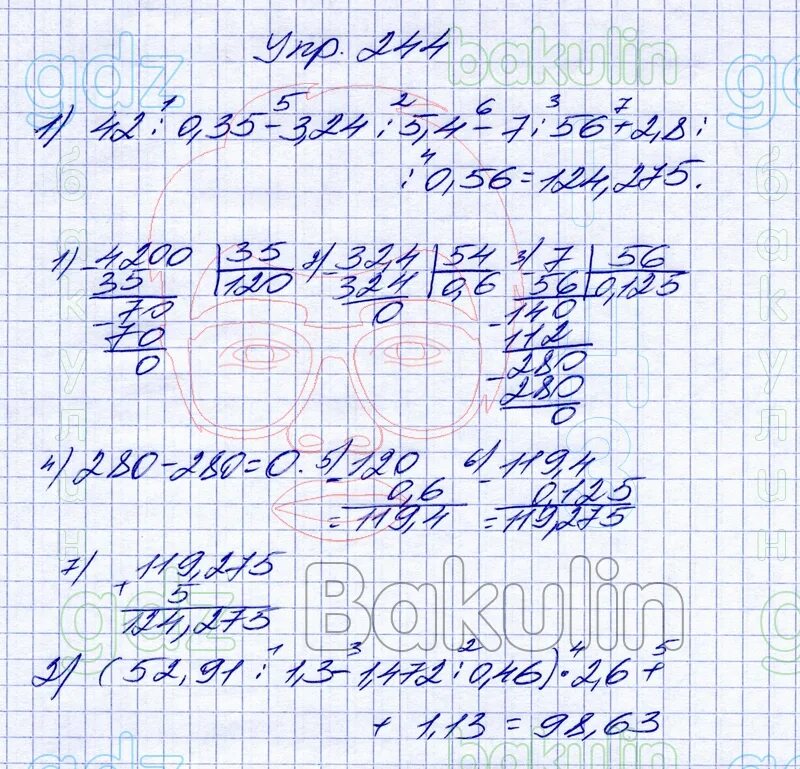 Упр. 244
1) 42 : 0,35 - 3,24 : 5,4 - 7 : 56 + 2,8 :
: 0,56 = 124,275.
1) 4200 | 35
35 | 120
70
70
0
2) 32,4 | 54
324 | 0,6
0
3) 7 | 56
56 | 0,125
140
112
280
280
0
4) 280 - 280 = 0.
5) 120
- 0,6
= 119,4
6) 119,4
- 0,125
= 119,275
7) 119,275
+ 5
124,275
2) (52,91 : 1,3 - 1,472 : 0,46) · 2,6 +
+ 1,13 = 98,63
gdz
bakulin
бакулин
gdz
Bakulin
gdz
bakulin